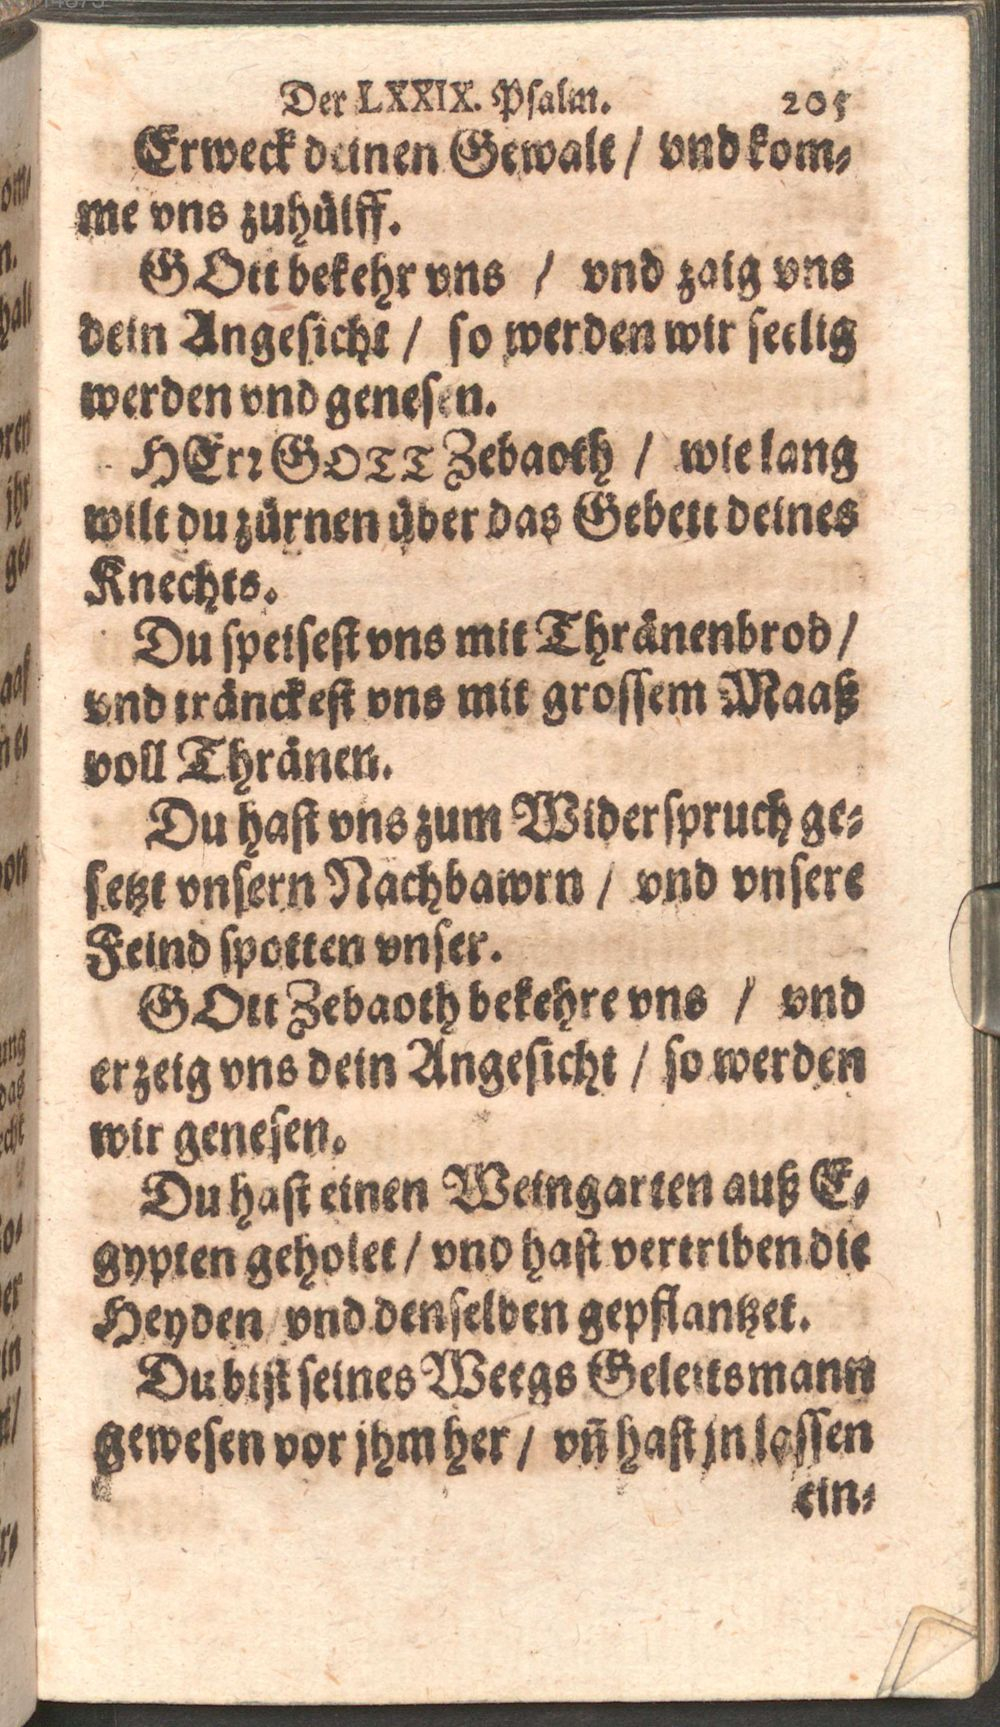 Der LXXIX. Psalm. 205
Erweck deinen Gewalt / vnd kom-
me vns zuhülff.
GOtt bekehr vns / vnd zaig vns
dein Angesicht / so werden wir seelig
werden vnd genesen.
HErr GOTT Zebaoth / wie lang
wilt du zürnen über das Gebett deines
Knechts.
Du speisest vns mit Thränenbrod /
vnd tränckest vns mit grossem Maaß
voll Thränen.
Du hast vns zum Widerspruch ge-
setzt vnsern Nachbawrn / vnd vnsere
Feind spotten vnser.
GOtt Zebaoth bekehre vns / vnd
erzeig vns dein Angesicht / so werden
wir genesen.
Du hast einen Weingarten auß E-
gypten geholet / vnd hast vertriben die
Heyden vnd denselben gepflantzet.
Du bist seines Weegs Geleitsmann
gewesen vor jhm her / vñ hast jn lassen
ein-